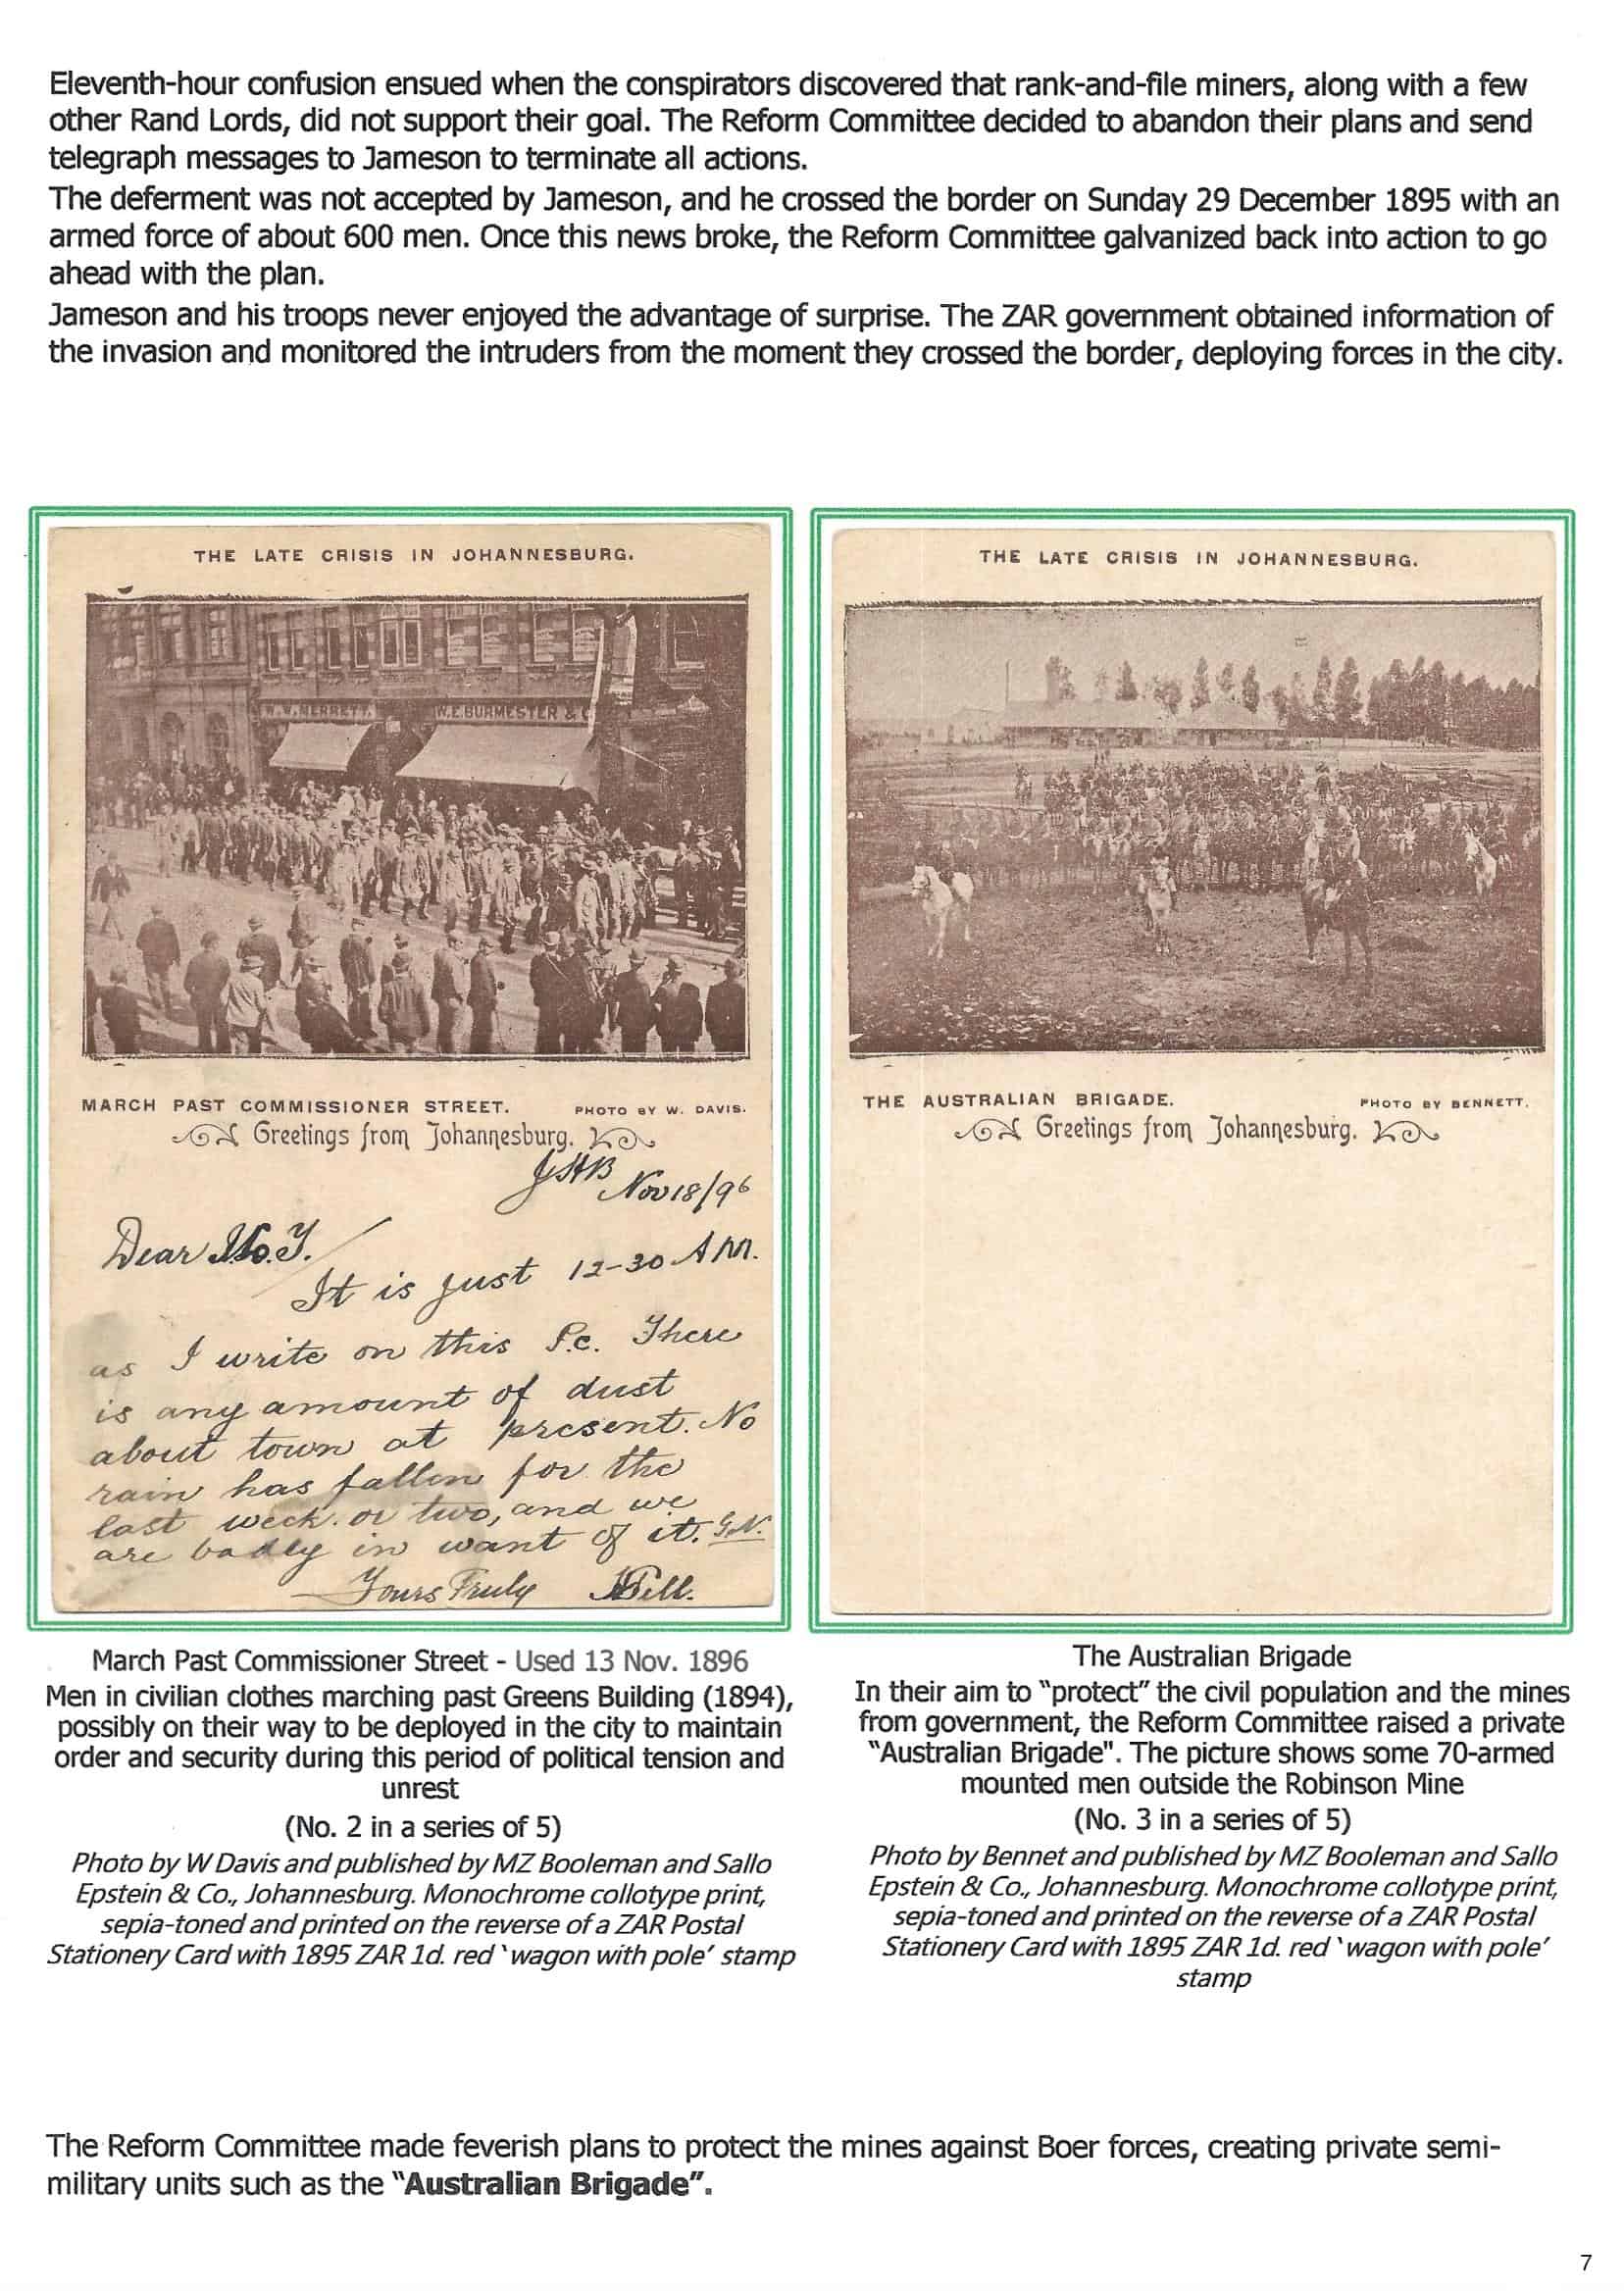 Eleventh-hour confusion ensued when the conspirators discovered that rank-and-file miners, along with a few
other Rand Lords, did not support their goal. The Reform Committee decided to abandon their plans and send
telegraph messages to Jameson to terminate all actions.
The deferment was not accepted by Jameson, and he crossed the border on Sunday 29 December 1895 with an
armed force of about 600 men. Once this news broke, the Reform Committee galvanized back into action to go
ahead with the plan.
Jameson and his troops never enjoyed the advantage of surprise. The ZAR government obtained information of
the invasion and monitored the intruders from the moment they crossed the border, deploying forces in the city.
THE LATE CRISIS IN JOHANNESBURG.
W.W. MERRETT.
W.E BURMESTER & C
MARCH PAST COMMISSIONER STREET. PHOTO BY W. DAVIS.
Greetings from Johannesburg.
JHB
Nov 18/96
Dear
It is just 12-30 AM.
as I write on this P.c. There
is any amount of dust
about town at present. No
rain has fallen for the
last week or two, and we
are badly in want of it. G.N.
Yours Truly
THE LATE CRISIS IN JOHANNESBURG.
THE AUSTRALIAN BRIGADE. PHOTO BY BENNETT.
Greetings from Johannesburg.
March Past Commissioner Street - Used 13 Nov. 1896
Men in civilian clothes marching past Greens Building (1894),
possibly on their way to be deployed in the city to maintain
order and security during this period of political tension and
unrest
(No. 2 in a series of 5)
Photo by W Davis and published by MZ Booleman and Sallo
Epstein & Co., Johannesburg. Monochrome collotype print,
sepia-toned and printed on the reverse of a ZAR Postal
Stationery Card with 1895 ZAR 1d. red ‘wagon with pole’ stamp
The Australian Brigade
In their aim to “protect” the civil population and the mines
from government, the Reform Committee raised a private
“Australian Brigade". The picture shows some 70-armed
mounted men outside the Robinson Mine
(No. 3 in a series of 5)
Photo by Bennet and published by MZ Booleman and Sallo
Epstein & Co., Johannesburg. Monochrome collotype print,
sepia-toned and printed on the reverse of a ZAR Postal
Stationery Card with 1895 ZAR 1d. red ‘wagon with pole’
stamp
The Reform Committee made feverish plans to protect the mines against Boer forces, creating private semi-
military units such as the “Australian Brigade”.
7